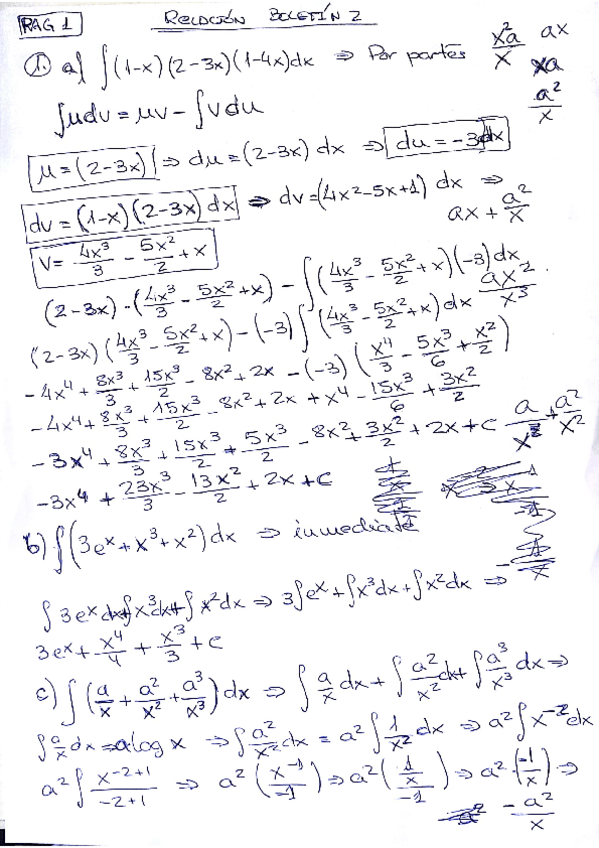 PAG 1 RELACIÓN BOLETÍN 2
1. a) ∫(1-x)(2-3x)(1-4x)dx ⇒ Por partes x²a/x ax
∫udv = uv - ∫vdu xa a²/x
u = (2-3x) ⇒ du = (2-3x) dx ⇒ du = -3dx
dv = (1-x)(2-3x)dx ⇒ dv = (4x²-5x+1) dx ⇒ ax + a²/x
v = 4x³/3 - 5x²/2 + x
(2-3x)·(4x³/3 - 5x²/2 + x) - ∫(4x³/3 - 5x²/2 + x)(-3)dx. ax²/x³
(2-3x)(4x³/3 - 5x²/2 + x) - (-3)∫(4x³/3 - 5x²/2 + x)dx
-4x⁴ + 8x³/3 + 15x³/2 - 8x² + 2x - (-3)(x⁴/3 - 5x³/6 + x²/2)
-4x⁴ + 8x³/3 + 15x³/2 - 8x² + 2x + x⁴ - 15x³/6 + 3x²/2
-3x⁴ + 8x³/3 + 15x³/2 + 5x³/2 - 8x² + 3x²/2 + 2x + c a/x + a²/x²
-3x⁴ + 23x³/3 - 13x²/2 + 2x + c
b) ∫(3eˣ + x³ + x²)dx ⇒ inmediata
∫3eˣdx + ∫x³dx + ∫x²dx ⇒ 3∫eˣ + ∫x³dx + ∫x²dx ⇒
3eˣ + x⁴/4 + x³/3 + c
c) ∫(a/x + a²/x² + a³/x³)dx ⇒ ∫a/x dx + ∫a²/x² dx + ∫a³/x³ dx ⇒
∫a/x dx = a log x ⇒ ∫a²/x² dx = a²∫1/x² dx ⇒ a²∫x⁻²dx
a²∫x⁻²⁺¹/-2+1 ⇒ a²(x⁻¹/-1) ⇒ a²(1/x/-1) ⇒ a²·(-1/x) ⇒
-a²/x